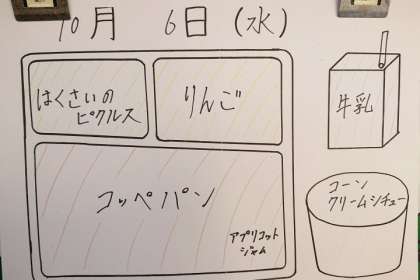 10月 6日 (水)
はくさいの
ピクルス
りんご
牛乳
コッペパン
アプリコット
ジャム
コーン
クリームシチュー